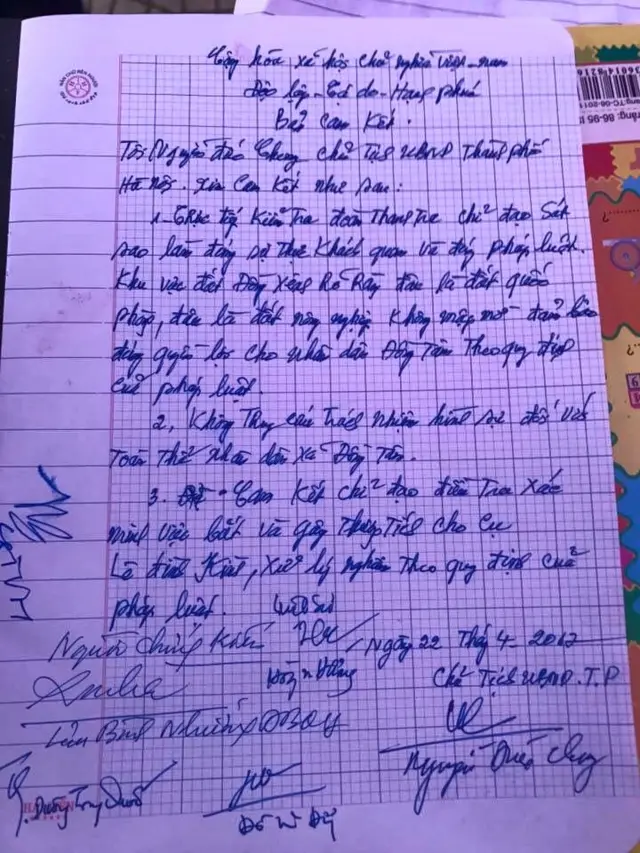 Cộng hòa xã hội chủ nghĩa Việt-nam
Độc lập-Tự do-Hạnh phúc
Bản Cam Kết.
Tôi Nguyễn Đức Chung chủ Tịch UBND Thành phố
Hà Nội. xin Cam Kết như sau:
1. Trực tiếp Kiểm Tra đoàn Thanh Tra chỉ đạo Sát
sao làm đúng sự Thật Khách quan và đúng pháp luật.
Khu vực đất Đồng Sênh Rõ Ràng đâu là đất quốc
phòng, đâu là đất nông nghiệp Không mập mờ đảm bảo
đúng quyền lợi cho nhân dân Đồng Tâm Theo quy định
của pháp luật.
2, Không Truy cứu Trách nhiệm hình sự đối với
Toàn Thể nhân dân xã Đồng Tâm.
3. Cam Kết chỉ đạo điều Tra Xác
minh việc bắt và gây Thương Tích cho Cụ
Lê Đình Kình, Xử lý nghiêm Theo quy định của
pháp luật. Luật Sư
Người Chứng Kiến Ngày 22 Tháng 4-2017
Chủ Tịch UBND.T.P
Lưu Bình Nhưỡng ĐBQH
Nguyễn Đức Chung
Dương Trung Quốc